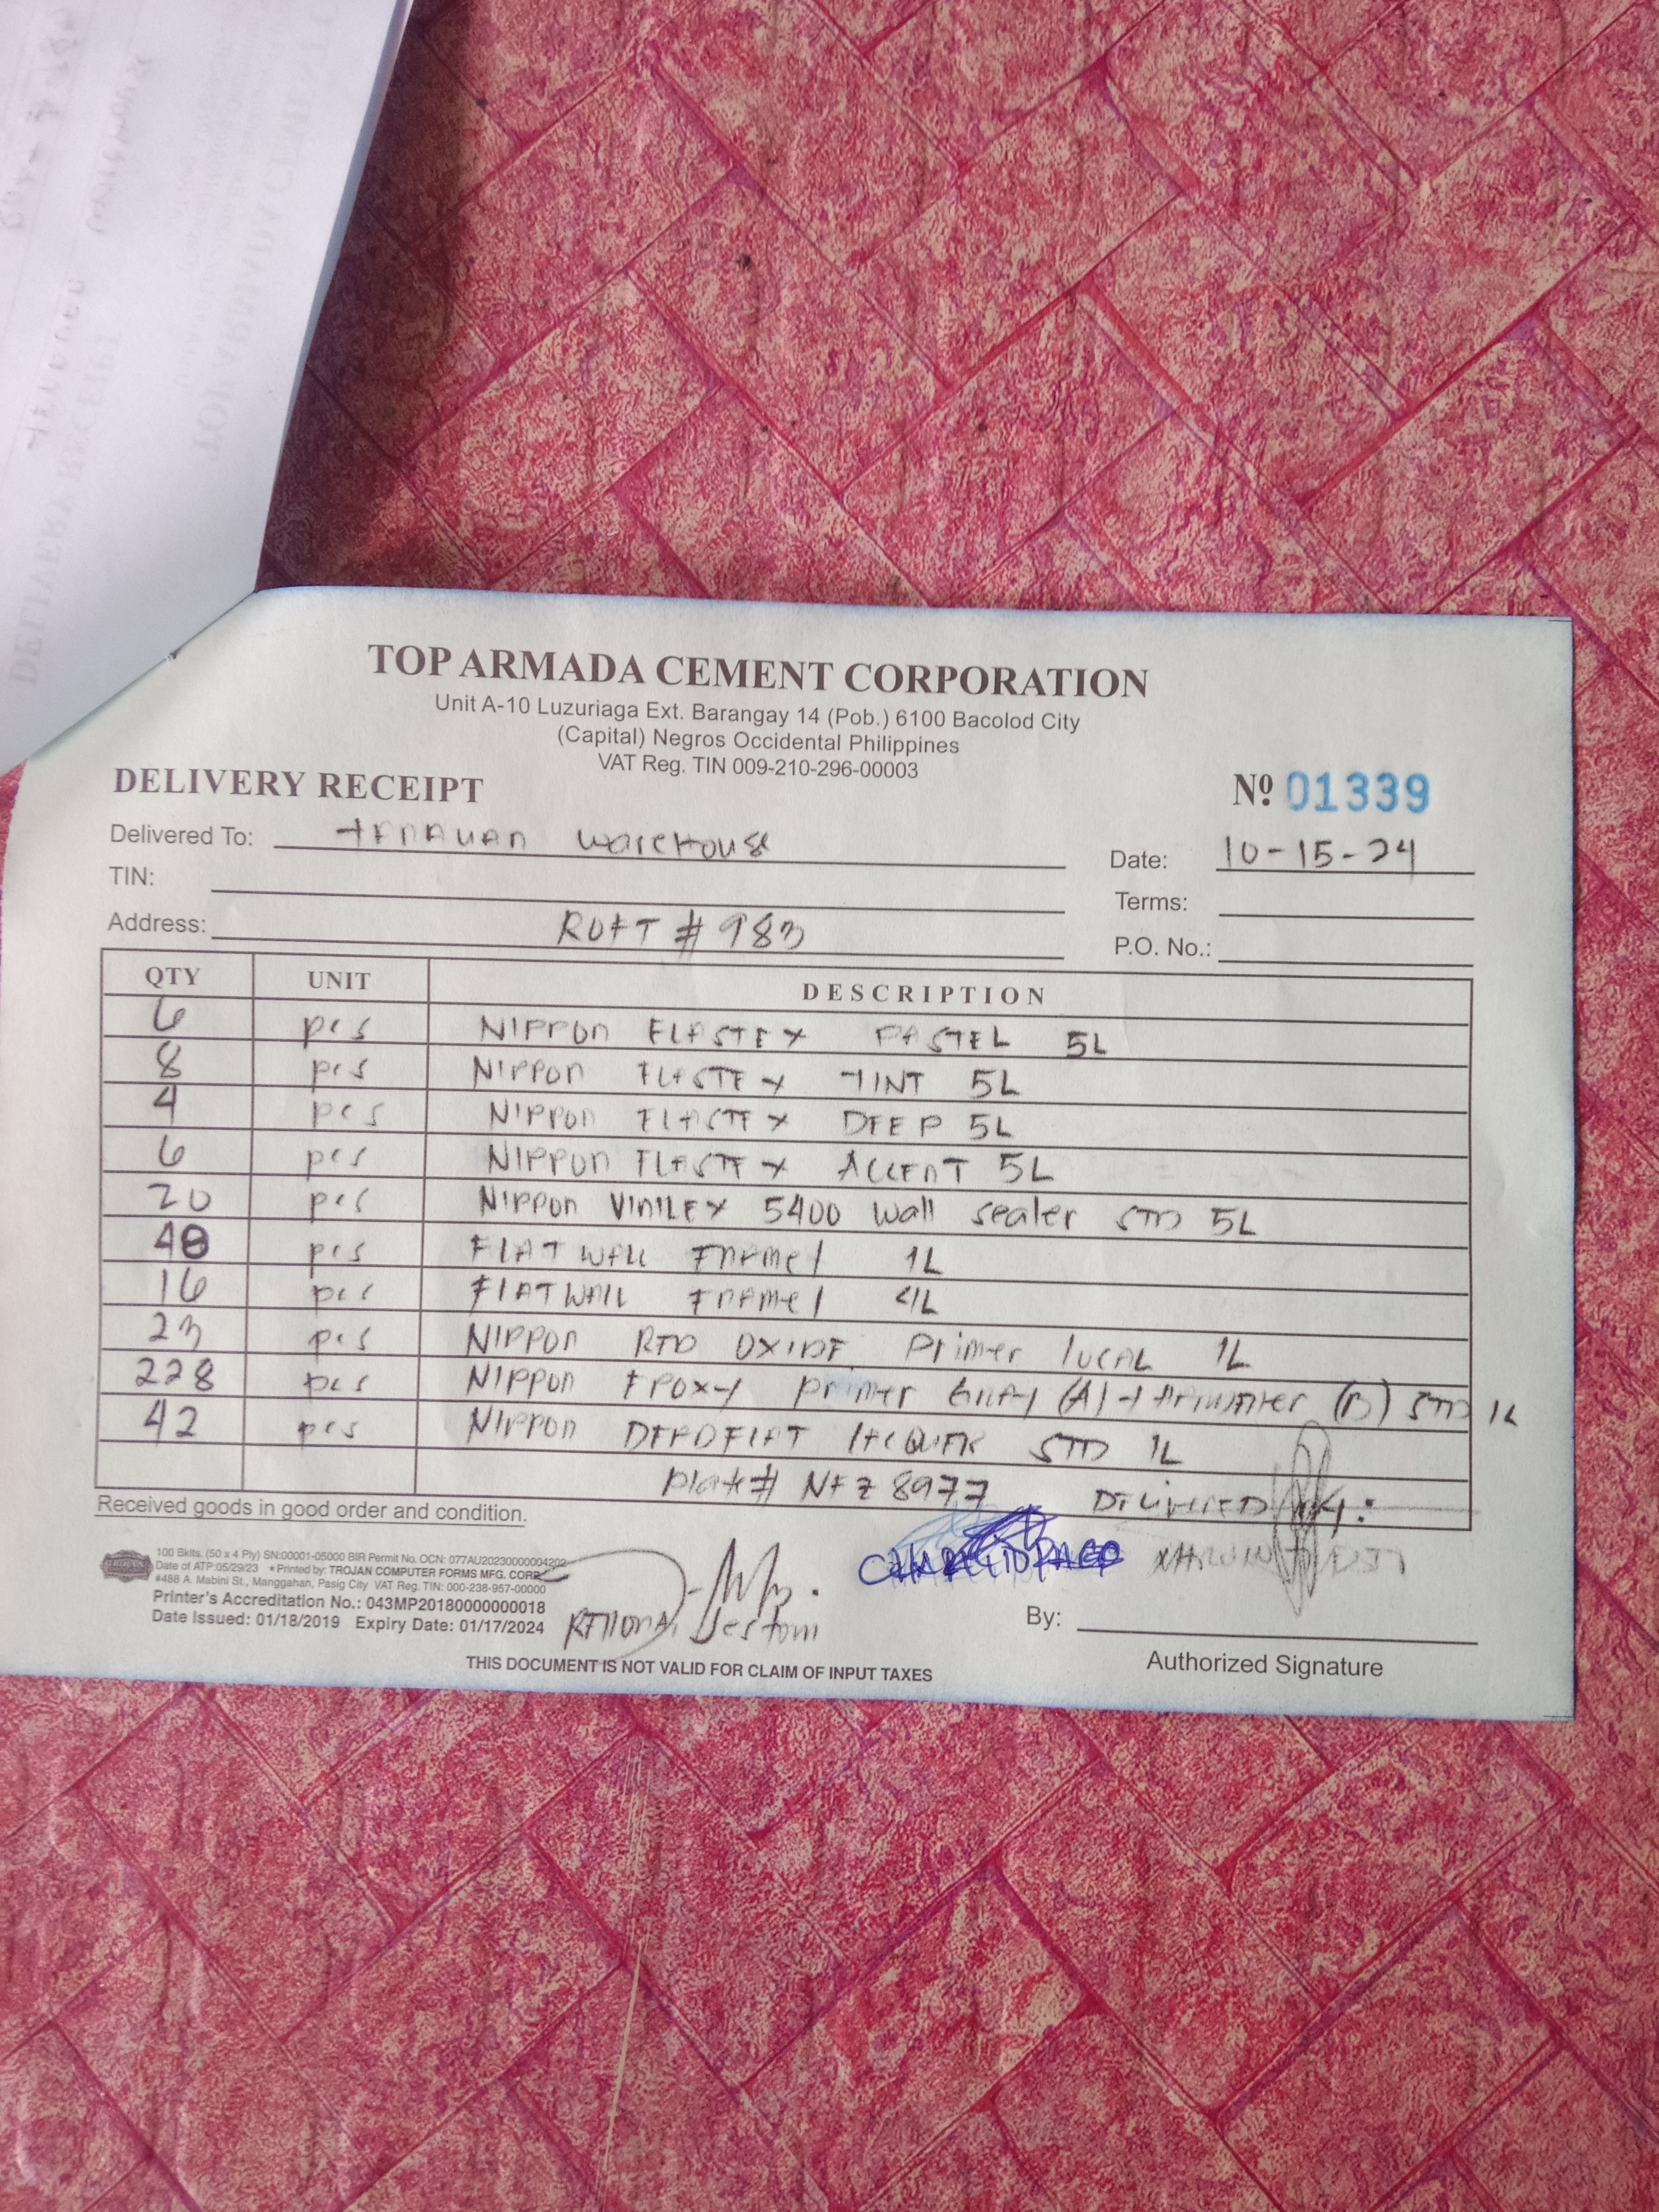 TOP ARMADA CEMENT CORPORATION
Unit A-10 Luzuriaga Ext. Barangay 14 (Pob.) 6100 Bacolod City
(Capital) Negros Occidental Philippines
VAT Reg. TIN 009-210-296-00003
DELIVERY RECEIPT Nº 01339
Delivered To: tanauan warehouse Date: 10-15-24
TIN: Terms:
Address: ROFT # 983 P.O. No.:
QTY UNIT DESCRIPTION
6 pcs NIPPON ELASTEX PASTEL 5L
8 pcs NIPPON ELASTEX TINT 5L
4 pcs NIPPON ELASTEX DEEP 5L
6 pcs NIPPON ELASTEX ACCENT 5L
20 pcs NIPPON VINILEX 5400 wall sealer STD 5L
40 pcs FLAT WALL ENAMEl 1L
16 pcs FLAT WALL ENAMEl 4L
23 pcs NIPPON RED OXIDE Primer local 1L
228 pcs NIPPON EPOXY primer Gray (A) + Hardener (B) STD 1L
42 pcs NIPPON DEADFLAT LACQUER STD 1L
Plate# NFZ 8977 DELIVERED BY:
Received goods in good order and condition.
100 Bklts. (50 x 4 Ply) SN:00001-05000 BIR Permit No. OCN: 077AU20230000004202
Date of ATP:05/29/23 * Printed by: TROJAN COMPUTER FORMS MFG. CORP.
#488 A. Mabini St., Manggahan, Pasig City VAT Reg. TIN: 000-238-957-00000
Printer's Accreditation No.: 043MP20180000000018
Date Issued: 01/18/2019 Expiry Date: 01/17/2024
Jestoni
By:
Authorized Signature
THIS DOCUMENT IS NOT VALID FOR CLAIM OF INPUT TAXES